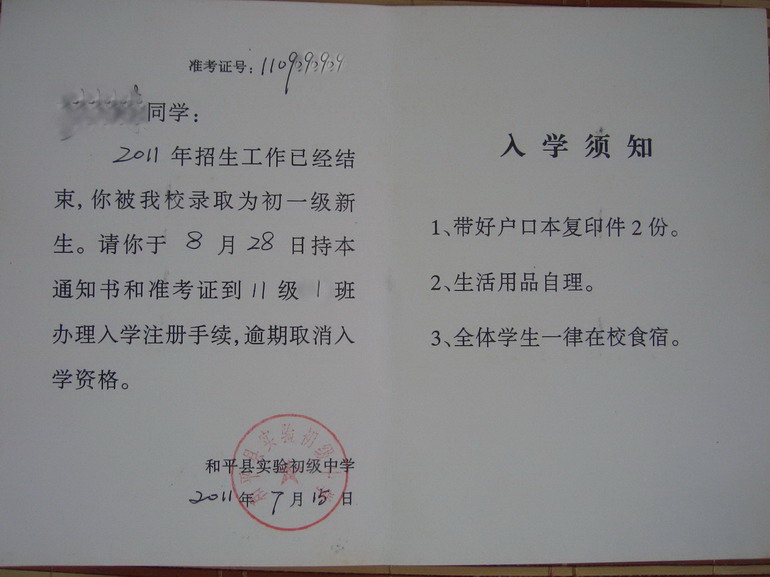 准考证号：
同学：
2011年招生工作已经结
束，你被我校录取为初一级新
生。请你于8月28日持本
通知书和准考证到11级1班
办理入学注册手续，逾期取消入
学资格。
和平县实验初级中学
2011年7月15日
和平县实验初级中学
入学须知
1、带好户口本复印件2份。
2、生活用品自理。
3、全体学生一律在校食宿。